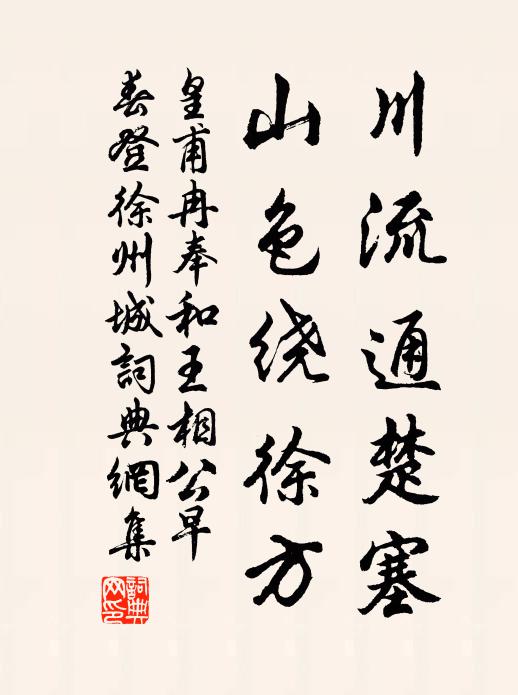 川流通楚塞
山色绕徐方
皇甫冉奉和王相公早
春登徐州城詞典網集
詞典
网印